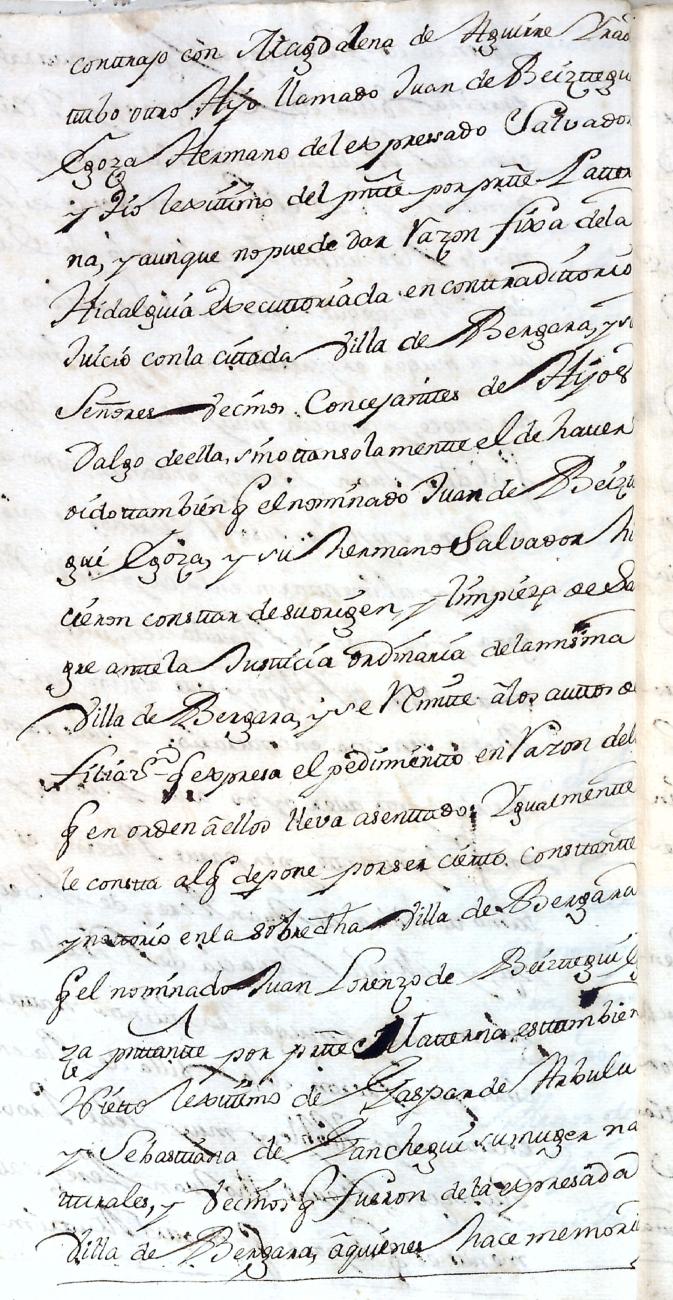 contrajo con Magdalena de Aguirre
tubo otro Hijo llamado Juan de Beiztegui
Egoza Hermano del expresado Salvador
y Tio lexitimo del pntte por prtte Patter
na, y aunque no puede dar razon fixa dela
Hidalguia executtoriada en conttradittorio
Juicio conla cittada Villa de Bergara, y s
Señores Vecinos Concejanttes de Hijos
Dalgo deella, sino ttan solamentte el de haver
oido ttambien q el nominado Juan de Beizte
gui Egoza, y su hermano Salvador hi
cieron consttar de su origen y limpieza de Sa
gre antte la Justticia ordinaria dela misma
Villa de Bergara, y se remitte â los auttos de
filiazn q expresa el pedimientto en razon del
q en orden â ellos lleva asenttado: Ygualmentte
le constta al q depone por ser ciertto consttante
y nottorio en la sobredha Villa de Bergara
q el nominado Juan Lorenzo de Beizttegui E
za pnttantte por prtte Matterna es ttambien
Nietto lexittimo de Gaspar de Arbulu
y Sebasttiana de Ganchegui su muger na
tturales, y Vecinos q fueron dela expresada
Villa de Bergara, â quienes hace memoria